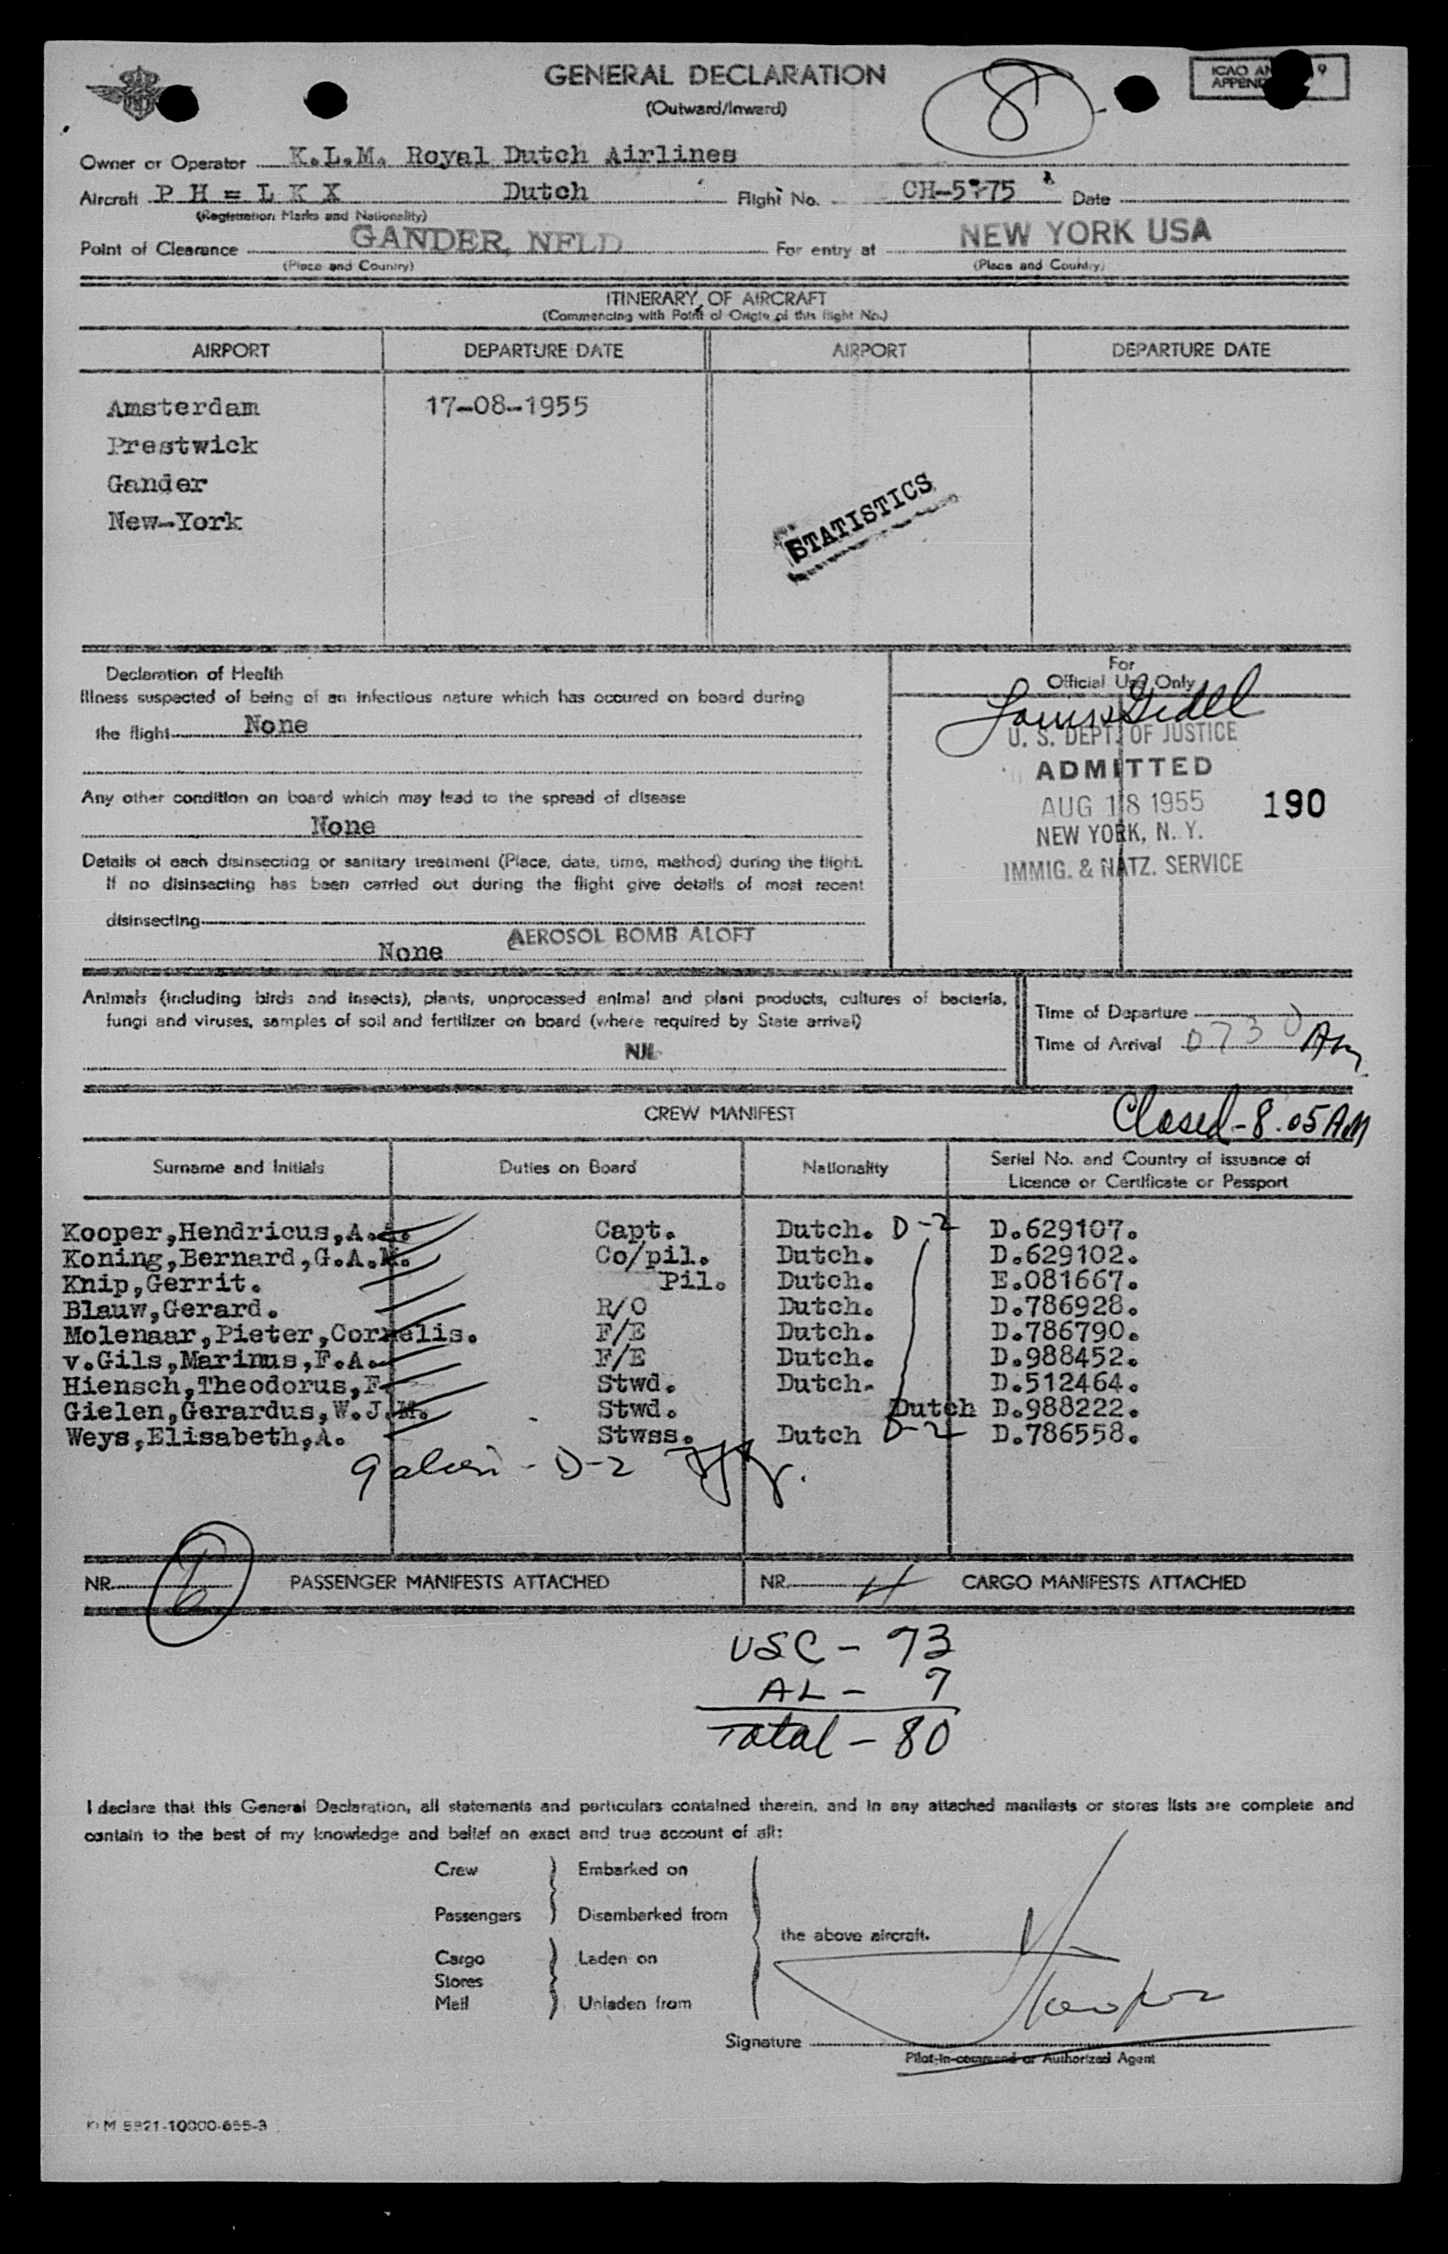 GENERAL DECLARATION
(Outward/Inward)
8
ICAO AN 9
APPEND
Owner or Operator K.L.M. Royal Dutch Airlines
Aircraft P H = L K X Dutch Flight No. CH-5775 Date
(Registration Marks and Nationality)
Point of Clearance GANDER, NFLD For entry at NEW YORK USA
(Place and Country) (Place and Country)
ITINERARY OF AIRCRAFT
(Commencing with Point of Origin of this flight No.)
AIRPORT DEPARTURE DATE AIRPORT DEPARTURE DATE
Amsterdam 17-08-1955
Prestwick
Gander
New-York
STATISTICS
Declaration of Health
Illness suspected of being of an infectious nature which has occured on board during
the flight None
Any other condition on board which may lead to the spread of disease
None
Details of each disinsecting or sanitary treatment (Place, date, time, method) during the flight.
If no disinsecting has been carried out during the flight give details of most recent
disinsecting
None AEROSOL BOMB ALOFT
For
Official Use Only
U. S. DEPT. OF JUSTICE
ADMITTED
AUG 18 1955 190
NEW YORK, N. Y.
IMMIG. & NATZ. SERVICE
Animals (including birds and insects), plants, unprocessed animal and plant products, cultures of bacteria,
fungi and viruses, samples of soil and fertilizer on board (where required by State arrival)
NIL
Time of Departure
Time of Arrival 0730 Am
Closed - 8.05 AM
CREW MANIFEST
Surname and Initials Duties on Board Nationality Seriel No. and Country of issuance of
Licence or Certificate or Passport
Kooper,Hendricus,A.A. Capt. Dutch. D-2 D.629107.
Koning,Bernard,G.A.M. Co/pil. Dutch. D.629102.
Knip,Gerrit. Pil. Dutch. E.081667.
Blauw,Gerard. R/O Dutch. D.786928.
Molenaar,Pieter,Cornelis. F/E Dutch. D.786790.
v.Gils,Marinus,F.A. F/E Dutch. D.988452.
Hiensch,Theodorus,F. Stwd. Dutch. D.512464.
Gielen,Gerardus,W.J.M. Stwd. Dutch D.988222.
Weys,Elisabeth,A. Stwss. Dutch D-2 D.786558.
9 D-2
NR. 6 PASSENGER MANIFESTS ATTACHED NR. 4 CARGO MANIFESTS ATTACHED
USC - 73
AL - 7
Total - 80
I declare that this General Declaration, all statements and particulars contained therein, and in any attached manifests or stores lists are complete and
contain to the best of my knowledge and belief an exact and true account of all:
Crew Embarked on
Passengers Disembarked from
the above aircraft.
Cargo Laden on
Stores
Mail Unladen from
Kooper
Signature
Pilot-in-command or Authorized Agent
KLM 5821-10000-655-3